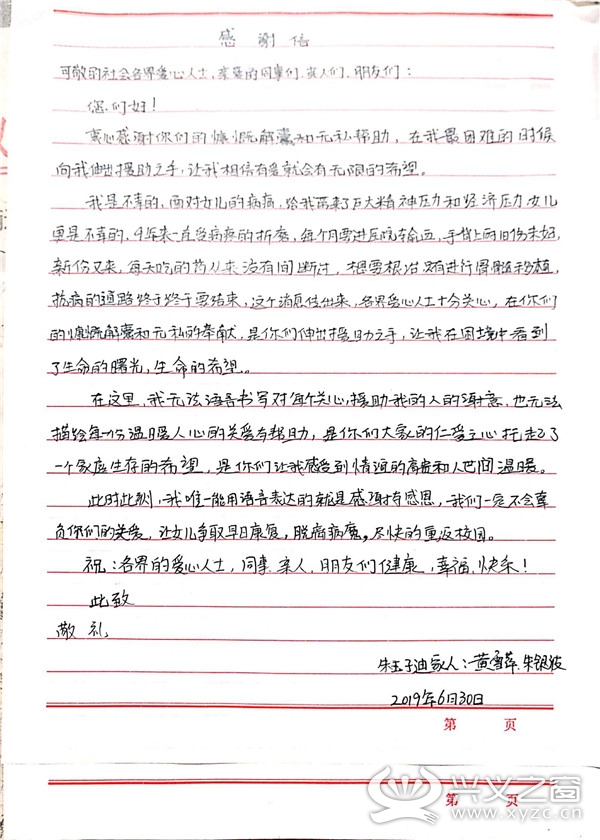 感谢信
可敬的社会各界爱心人士，亲爱的同事们、亲人们、朋友们：
您们好！
衷心感谢你们的慷慨解囊和无私帮助，在我最困难的时候
向我伸出援助之手，让我相信有爱就会有无限的希望。
我是不幸的，面对女儿的病痛，给我带来了巨大精神压力和经济压力女儿
更是不幸的，9年来一直受病疼的折磨，每个月要进医院输血，手背上的旧伤未好，
新伤又来，每天吃的药从来没有间断过，想要根治只有进行骨髓移植，
抗病的道路终于终于要结束，这个消息传出来，各界爱心人士十分关心，在你们
的慷慨解囊和无私的奉献，是你们伸出援助之手，让我在困境中看到
了生命的曙光，生命的希望。
在这里，我无法语言书写对每个关心，援助我的人的谢意，也无法
描绘每一份温暖人心的关爱与帮助，是你们大家的仁爱之心托起了
一个家庭生存的希望，是你们让我感受到情谊的高贵和人世间温暖。
此时此刻，我唯一能用语言表达的就是感谢与感恩，我们一定不会辜
负你们的关爱，让女儿争取早日康复，脱离病魔，尽快的重返校园。
祝：各界的爱心人士，同事、亲人、朋友们健康，幸福，快乐！
此致
敬礼
朱玉迪家人：黄雪萍、朱银波
2019年6月30日
第 页
第 页
兴义之窗
www.xyzc.cn